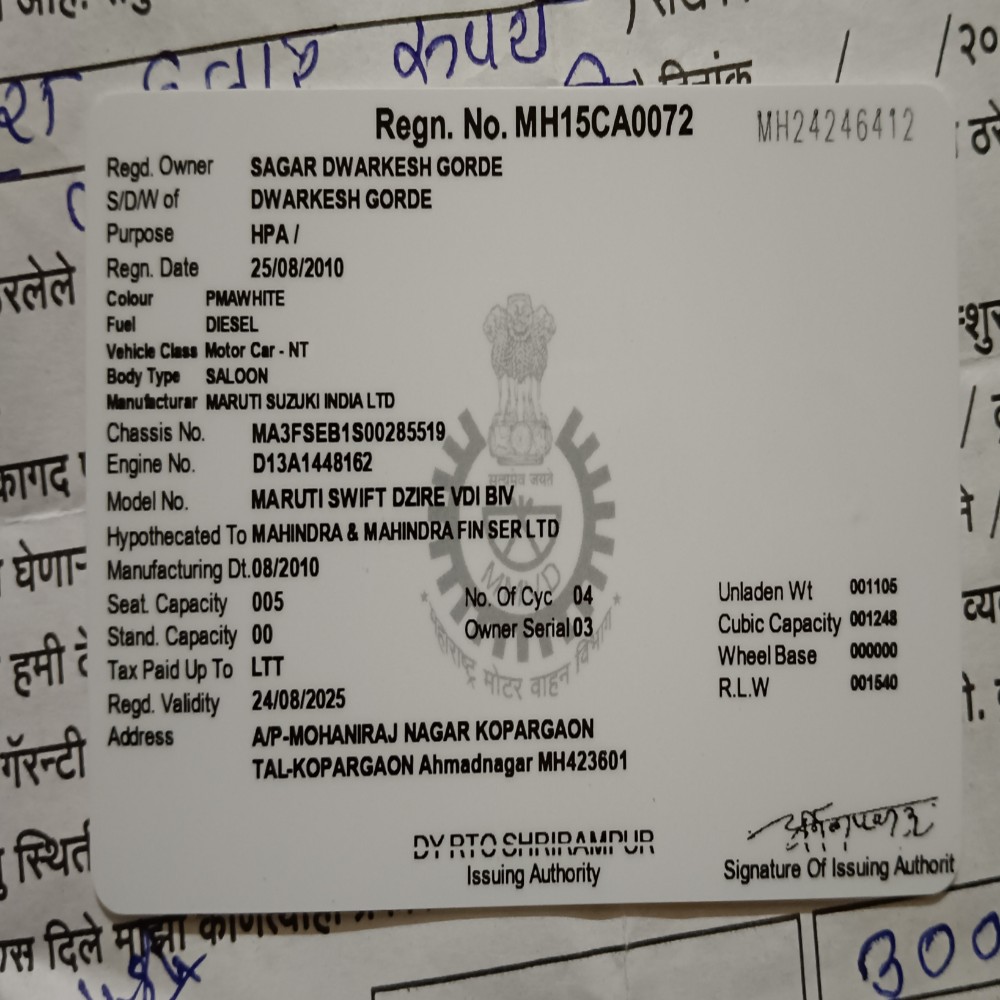 Regn. No. MH15CA0072
MH24246412
Regd. Owner SAGAR DWARKESH GORDE
S/D/W of DWARKESH GORDE
Purpose HPA /
Regn. Date 25/08/2010
Colour PMAWHITE
Fuel DIESEL
Vehicle Class Motor Car - NT
Body Type SALOON
Manufacturar MARUTI SUZUKI INDIA LTD
Chassis No. MA3FSEB1S00285519
Engine No. D13A1448162
Model No. MARUTI SWIFT DZIRE VDI BIV
Hypothecated To MAHINDRA & MAHINDRA FIN SER LTD
Manufacturing Dt. 08/2010
Seat. Capacity 005 No. Of Cyc 04 Unladen Wt 001105
Stand. Capacity 00 Owner Serial 03 Cubic Capacity 001248
Tax Paid Up To LTT Wheel Base 000000
Regd. Validity 24/08/2025 R.L.W 001540
Address A/P-MOHANIRAJ NAGAR KOPARGAON
TAL-KOPARGAON Ahmadnagar MH423601
DY RTO SHRIRAMPUR
Issuing Authority
Signature Of Issuing Authorit
सत्यमेव जयते
MMVD
महाराष्ट्र मोटर वाहन विभाग
दिनांक / /२०
कागद
हमी
गॅरन्टी
दिले माझा
300